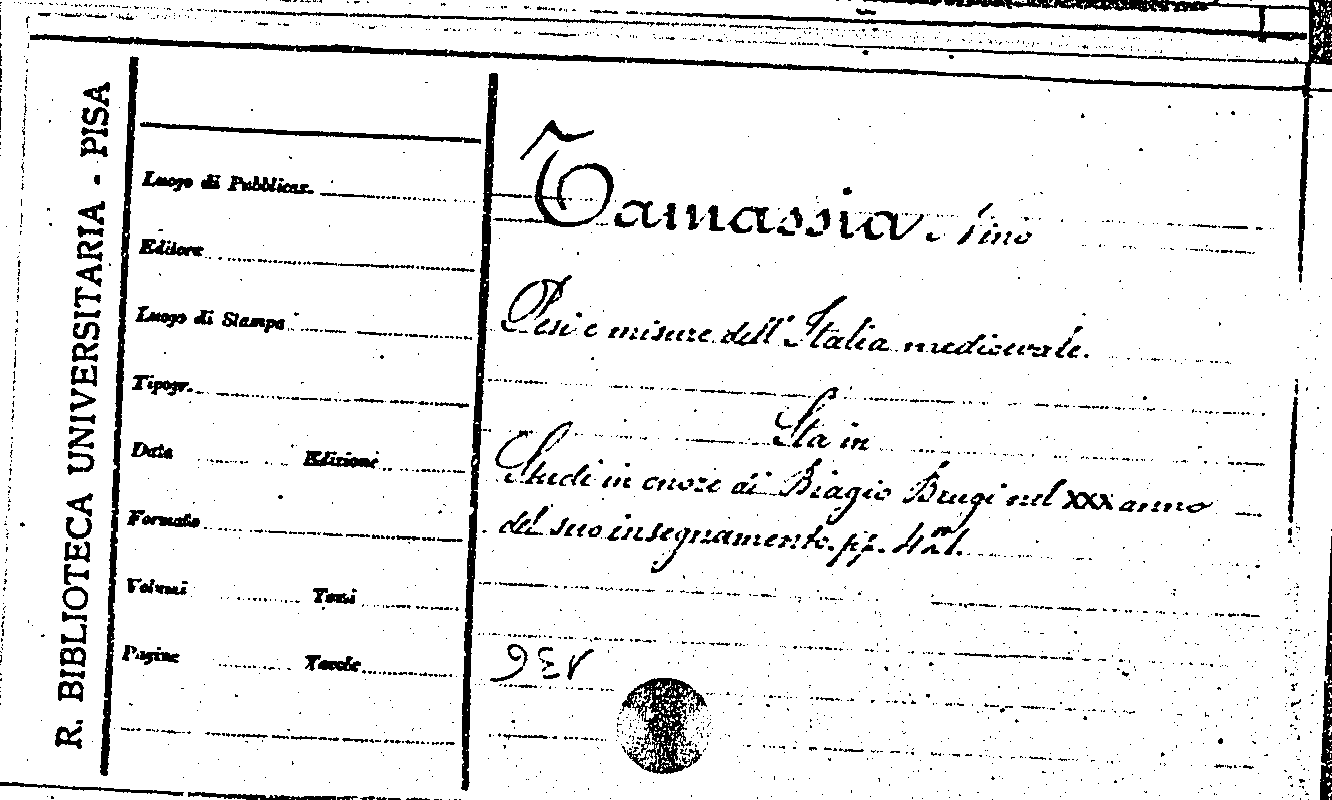 R. BIBLIOTECA UNIVERSITARIA - PISA
Luogo di Pubblicaz.
Editore
Luogo di Stampa
Tipogr.
Data Edizione
Formato
Volumi Tomi
Pagine Tavole
Tamassia. Nino
Pesi e misure dell'Italia medioevale.
Sta in
Studi in onore di Biagio Brugi nel XXX anno
del suo insegnamento. pp.